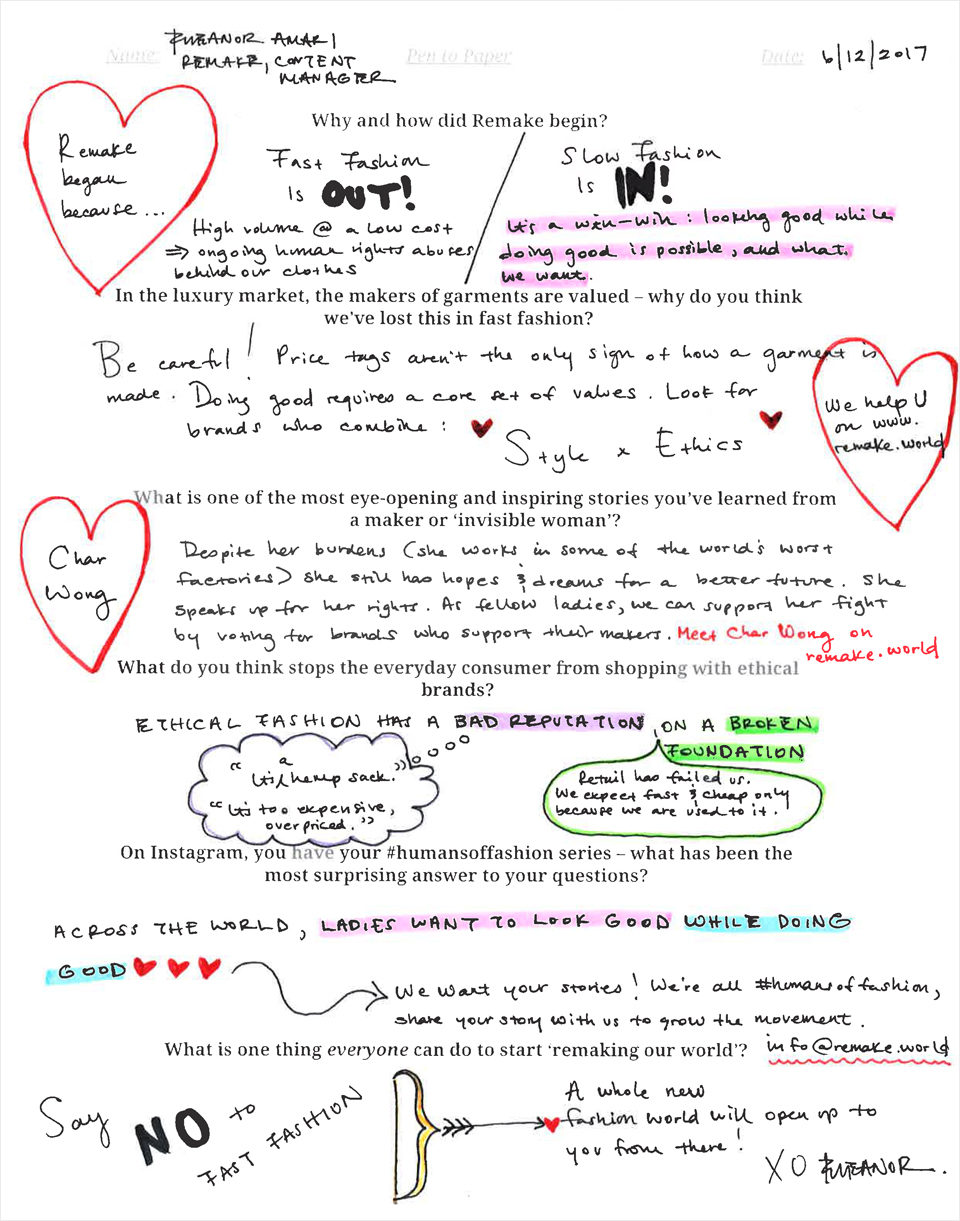 Name: ELEANOR AMARI Pen to Paper Date: 6/12/2017
REMAKE, CONTENT
MANAGER
Why and how did Remake begin?
Remake
began
because...
Fast Fashion
Is OUT!
High volume @ a low cost
⇒ ongoing human rights abuses
behind our clothes
Slow Fashion
Is IN!
It's a win-win: looking good while
doing good is possible, and what
we want.
In the luxury market, the makers of garments are valued – why do you think
we've lost this in fast fashion?
Be careful! Price tags aren't the only sign of how a garment is
made. Doing good requires a core set of values. Look for
brands who combine:
Style x Ethics
We help U
on www.
remake.world
What is one of the most eye-opening and inspiring stories you've learned from
a maker or ‘invisible woman’?
Char
Wong
Despite her burdens (she works in some of the world's worst
factories) she still has hopes & dreams for a better future. She
speaks up for her rights. As fellow ladies, we can support her fight
by voting for brands who support their makers. Meet Char Wong on
remake.world
What do you think stops the everyday consumer from shopping with ethical
brands?
ETHICAL FASHION HAS A BAD REPUTATION, ON A BROKEN
FOUNDATION
“It's a hemp sack.”
“It's too expensive,
overpriced.”
Retail has failed us.
We expect fast & cheap only
because we are used to it.
On Instagram, you have your #humansoffashion series – what has been the
most surprising answer to your questions?
ACROSS THE WORLD, LADIES WANT TO LOOK GOOD WHILE DOING
GOOD
We want your stories! We're all #humansoffashion,
share your story with us to grow the movement.
info@remake.world
What is one thing everyone can do to start ‘remaking our world’?
Say NO to
FAST FASHION
A whole new
fashion world will open up to
you from there!
XO ELEANOR.